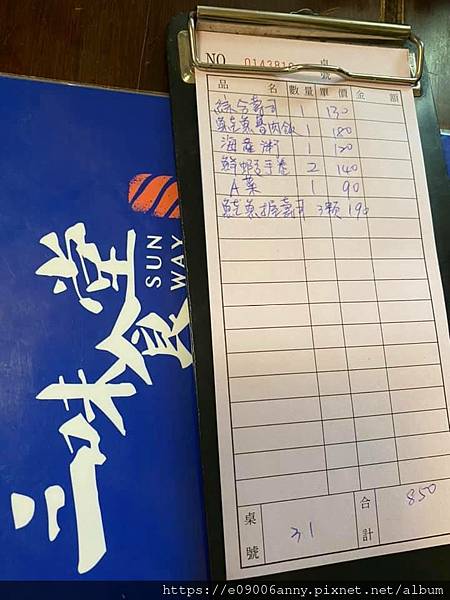 NO 0143818 桌號
品 名 數量 單價 金 額
綜合壽司 1 130
鮭魚魯肉飯 1 180
海產粥 1 120
鮮蝦手卷 2 140
A菜 1 90
鮭魚握壽司 3顆 190
桌號 31 合計 850
三味食堂
SUN
WAY
https://e09006anny.pixnet.net/album